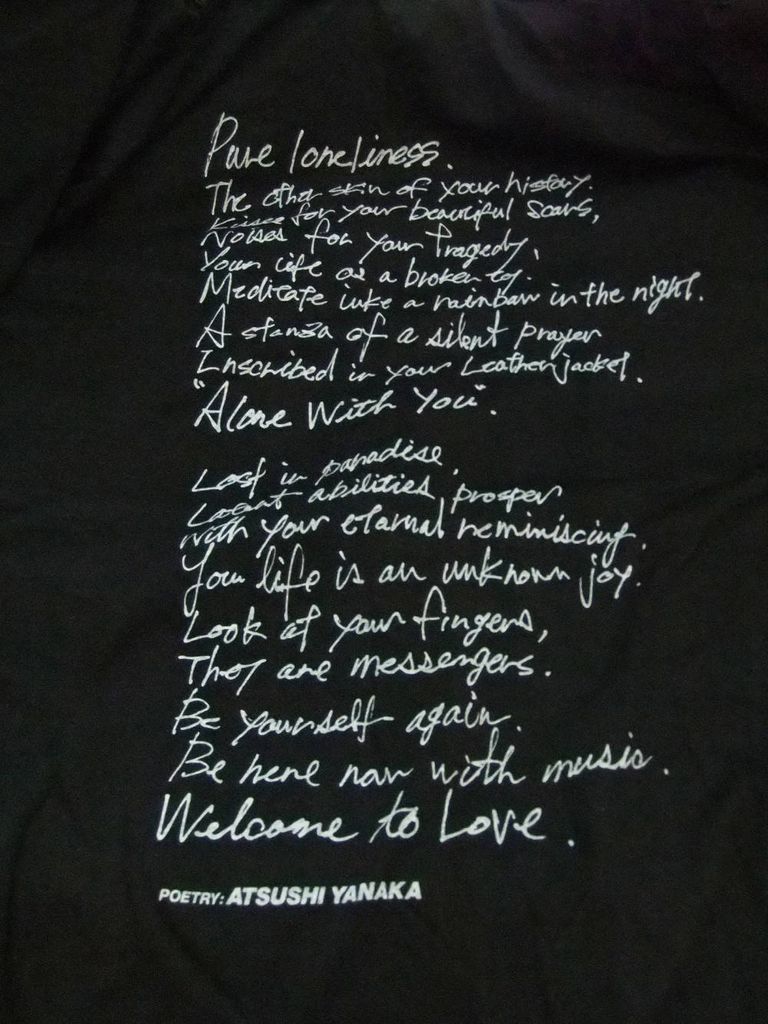 Pure loneliness.
The other skin of your history.
Kisses for your beautiful scars,
Noises for your Tragedy,
Your life as a broken toy.
Meditate like a rainbow in the night.
A stanza of a silent prayer
Inscribed in your Leather jacket.
"Alone With You".
Lost in paradise,
Latent abilities prosper
with your eternal reminiscing.
Your life is an unknown joy.
Look at your fingers,
They are messengers.
Be yourself again.
Be here now with music.
Welcome to Love.
POETRY: ATSUSHI YANAKA